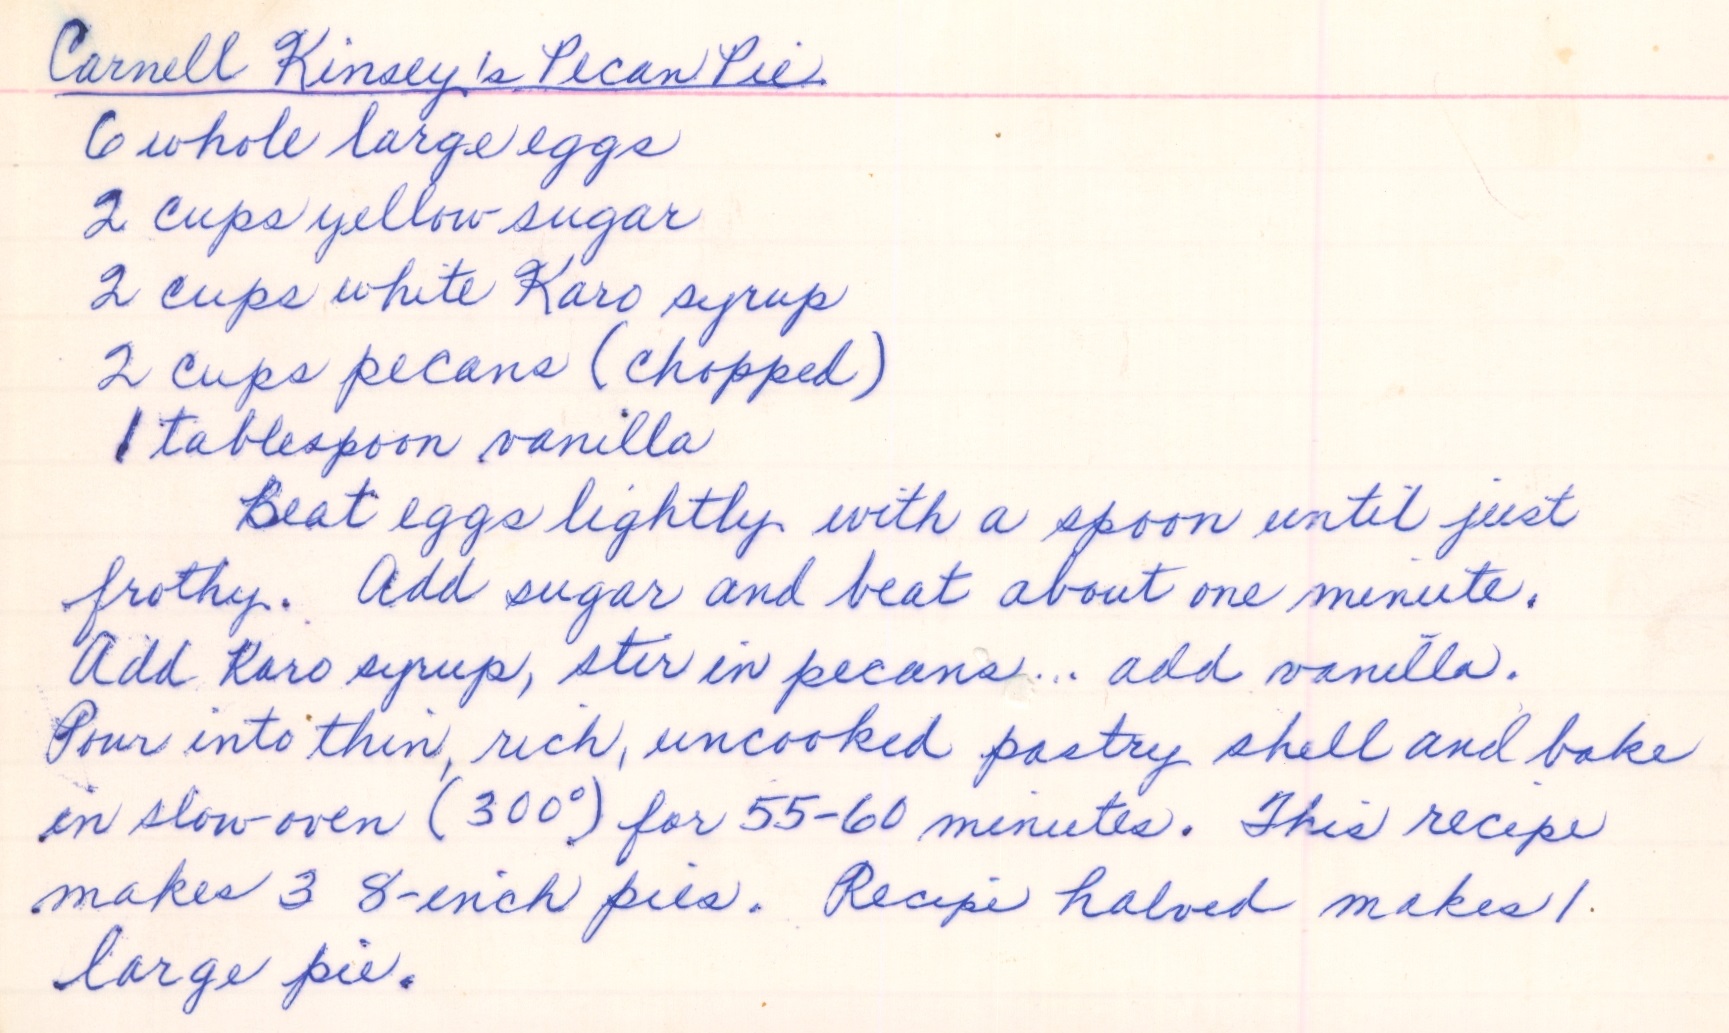 Carnell Kinsey's Pecan Pie
6 whole large eggs
2 cups yellow sugar
2 cups white Karo syrup
2 cups pecans (chopped)
1 tablespoon vanilla
Beat eggs lightly with a spoon until just
frothy. Add sugar and beat about one minute.
Add Karo syrup, stir in pecans... add vanilla.
Pour into thin, rich, uncooked pastry shell and bake
in slow oven (300°) for 55-60 minutes. This recipe
makes 3 8-inch pies. Recipe halved makes 1
large pie.